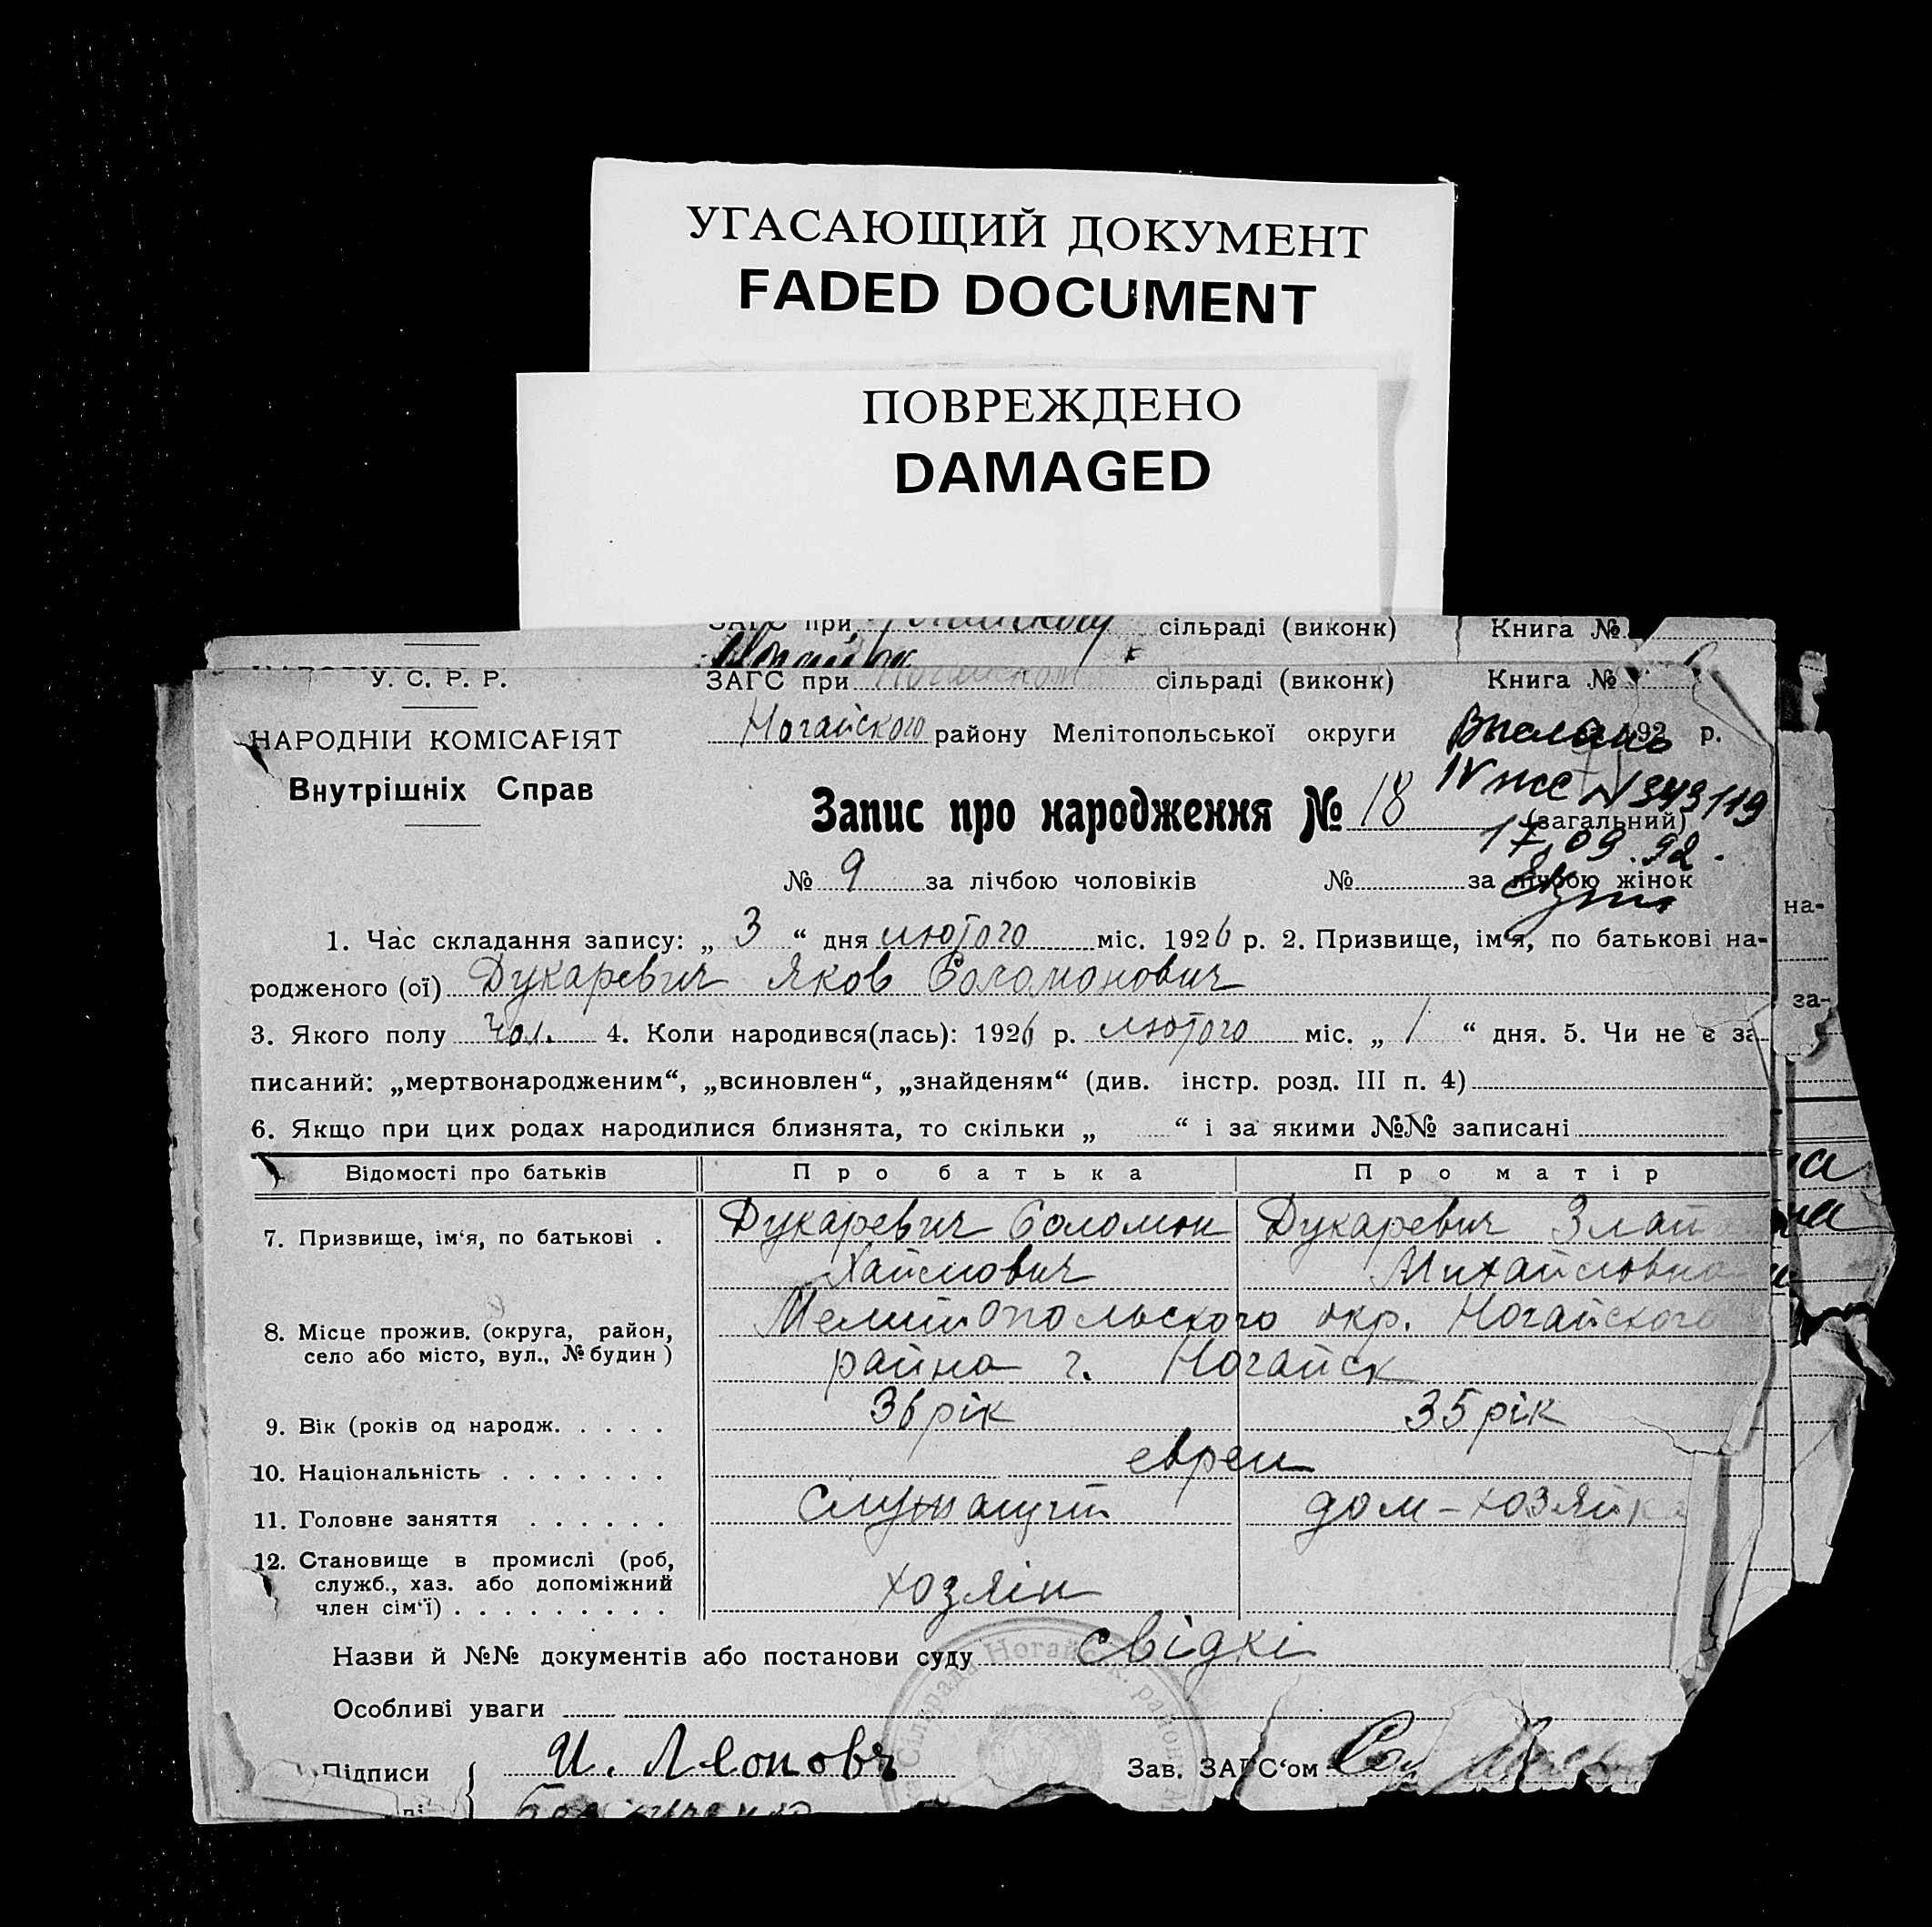 УГАСАЮЩИЙ ДОКУМЕНТ
FADED DOCUMENT
ПОВРЕЖДЕНО
DAMAGED
ЗАГС при сільраді (виконк) Книга №
У. С. Р. Р. ЗАГС при Ногайском сільраді (виконк) Книга №
НАРОДНІЙ КОМІСАРІЯТ Ногайского району Мелітопольської округи 192 р.
Внутрішніх Справ
Запис про народження № 18 (загальний)
N 343119
17.09.92.
№ 9 за лічбою чоловіків № за лічбою жінок
1. Час складання запису: „ 3 “ дня лютого міс. 1926 р. 2. Призвище, ім'я, по батькові на-
родженого (ої) Дукаревич Яков Соломонович
3. Якого полу Чол. 4. Коли народився(лась): 1926 р. лютого міс. „ 1 “ дня. 5. Чи не є за-
писаний: „мертвонародженим“, „всиновлен“, „знайденям“ (див. інстр. розд. III п. 4)
6. Якщо при цих родах народилися близнята, то скільки „ “ і за якими №№ записані
Відомості про батьків Про батька Про матір
7. Призвище, ім'я, по батькові . Дукаревич Соломон Дукаревич Злата
Хаймович Михайловна
8. Місце прожив. (округа, район, село або місто, вул., № будин) Мелитопольского окр. Ногайского
района г. Ногайск
9. Вік (років од народж. . . . . 36 рік 35 рік
10. Національність . . . . . . . евреи
11. Головне заняття . . . . . . дом-хозяйка
12. Становище в промислі (роб,
служб., хаз. або допоміжний
член сім'ї) . . . . . . . . . хозяін
Назви й №№ документів або постанови суду свідкі
Особливі уваги
Підписи И. Леоновъ Зав. ЗАГС'ом
на-
за-